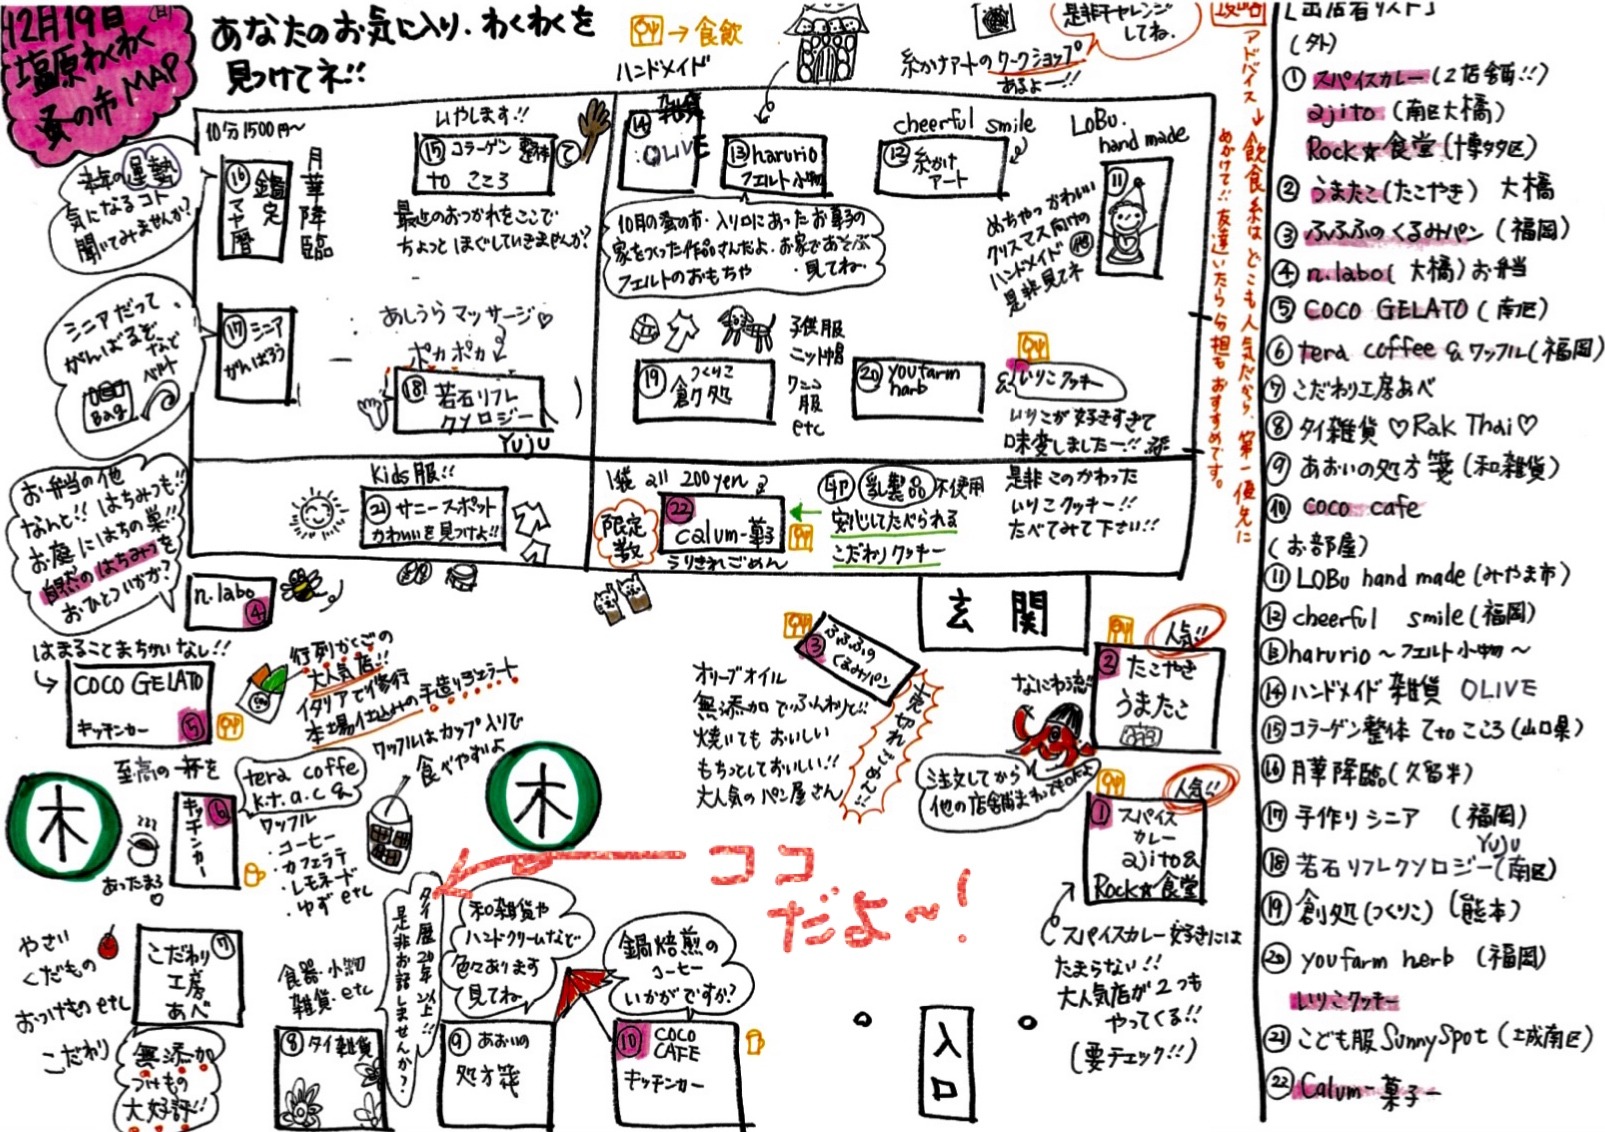 12月19日(日)
塩原わくわく
蚤の市MAP
あなたのお気に入り、わくわくを
見つけてネ!!
→食飲
ハンドメイド
糸かけアートのワークショップ
あるよー!!
是非チャレンジ
してね。
攻略
アドバイス→飲食系はどこも人気だから、第一優先に
めがけて!!友達いたら分担もおすすめです。
10分1500円〜
⑯鑑定
マヤ暦
月華降臨
来年の運勢
気になるコト
聞いてみませんか?
いやします!!
⑮コラーゲン整体
て
to こころ
最近のおつかれをここで
ちょっとほぐしていきませんか?
⑭雑貨
OLIVE
⑬harurio
フェルト小物
10月の蚤の市・入り口にあったお菓子の
家をつくった作品さんだよ。お家であそぶ
フェルトのおもちゃ 見てね。
cheerful smile
⑫糸かけ
アート
LoBu.
hand made
⑪
めちゃっかわいい
クリスマス向けの
ハンドメイド他
是非見てネ
シニアだって
がんばるぞ
など
Bag
ベルト
⑰シニア
がんばろう
あしうらマッサージ♡
ポカポカ
⑱若石リフレ
クソロジー
Yuju
⑲つくりこ
創処
子供服
ニット帽
ワンコ
服
etc
⑳youfarm
herb
&いりこクッキー
いりこが好きすぎて
味変しましたー!!
是非このかわった
いりこクッキー!!
たべてみて下さい!!
Kids服!!
㉑サニースポット
かわいいを見つけよ!!
1袋 all 200yen
限定
数
㉒
Calum-菓子
うりきれごめん
卵 乳製品 不使用
安心してたべられる
こだわりクッキー
お弁当の他
なんと!!はちみつも!!
お庭にはちの巣!!
自然のはちみつを
おひとついかが?
n.labo
④
はまることまちがいなし!!
COCO GELATO
キッチンカー⑤
行列かくごの
大人気店!!
イタリアで修行
本場仕込みの手造りジェラート
ワッフルはカップ入りで
食べやすいよ
至高の一杯を
tera coffe
k.t.a.c &
ワッフル
・コーヒー
・カフェラテ
・レモネード
・ゆず etc
木
⑥
キッチンカー
あったまる
木
玄関
③ふふふの
くるみパン
売切れごめん!!
オリーブオイル
無添加でふんわりで!!
焼いてもおいしい
もちっとしておいしい!!
大人気のパン屋さん
人気!!
②たこやき
うまたこ
なにわ流!!
注文してから
他の店舗まわってもOKだよ
人気!!
①スパイス
カレー
ajito&
Rock☆食堂
スパイスカレー好きには
たまらない!!
大人気店が2つも
やってくる!!
(要チェック!!)
ココ
だよ〜!
やさい
くだもの
おつけもの etc
こだわり
こだわり⑦
工房
あべ
無添加
つけもの
大好評!!
食器・小物
雑貨・etc
⑧タイ雑貨
タイ歴20年以上!!
是非お話しませんか?
和雑貨や
ハンドクリームなど
色々あります
見てね
⑨あおいの
処方箋
鍋焙煎の
コーヒー
いかがですか?
⑩COCO
CAFE
キッチンカー
入口
「出店者リスト」
(外)
①スパイスカレー(2店舗!!)
ajito(南区大橋)
Rock☆食堂(博多区)
②うまたこ(たこやき) 大橋
③ふふふのくるみパン(福岡)
④n.labo(大橋)お弁当
⑤COCO GELATO(南区)
⑥tera coffee & ワッフル(福岡)
⑦こだわり工房あべ
⑧タイ雑貨♡Rak Thai♡
⑨あおいの処方箋(和雑貨)
⑩coco cafe
(お部屋)
⑪LOBu hand made(みやま市)
⑫cheerful smile(福岡)
⑬harurio〜フェルト小物〜
⑭ハンドメイド雑貨 OLIVE
⑮コラーゲン整体 てtoこころ(山口県)
⑯月華降臨(久留米)
⑰手作りシニア (福岡)
⑱若石リフレクソロジーYuju(南区)
⑲創処(つくりこ)(熊本)
⑳youfarm herb (福岡)
いりこクッキー
㉑こども服SunnySpot(城南区)
㉒Calum-菓子-